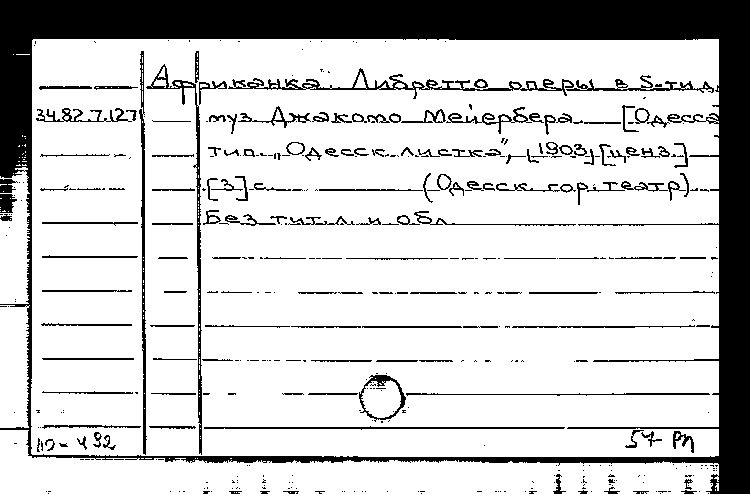 Африканка". Либретто оперы в 5-ти д.
34.82.7.127 муз Джакомо Мейербера. [Одесса
тип. „Одесск. листка", [1903] [ценз.]
[3] с. (Одесск. гор. театр)
Без тит. л. и обл.
57 РП